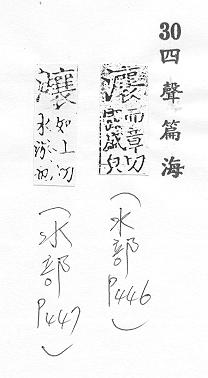 30四聲篇海
而章切
盛皃
(水部P446)
瀼
如上切
水
(水部P447)